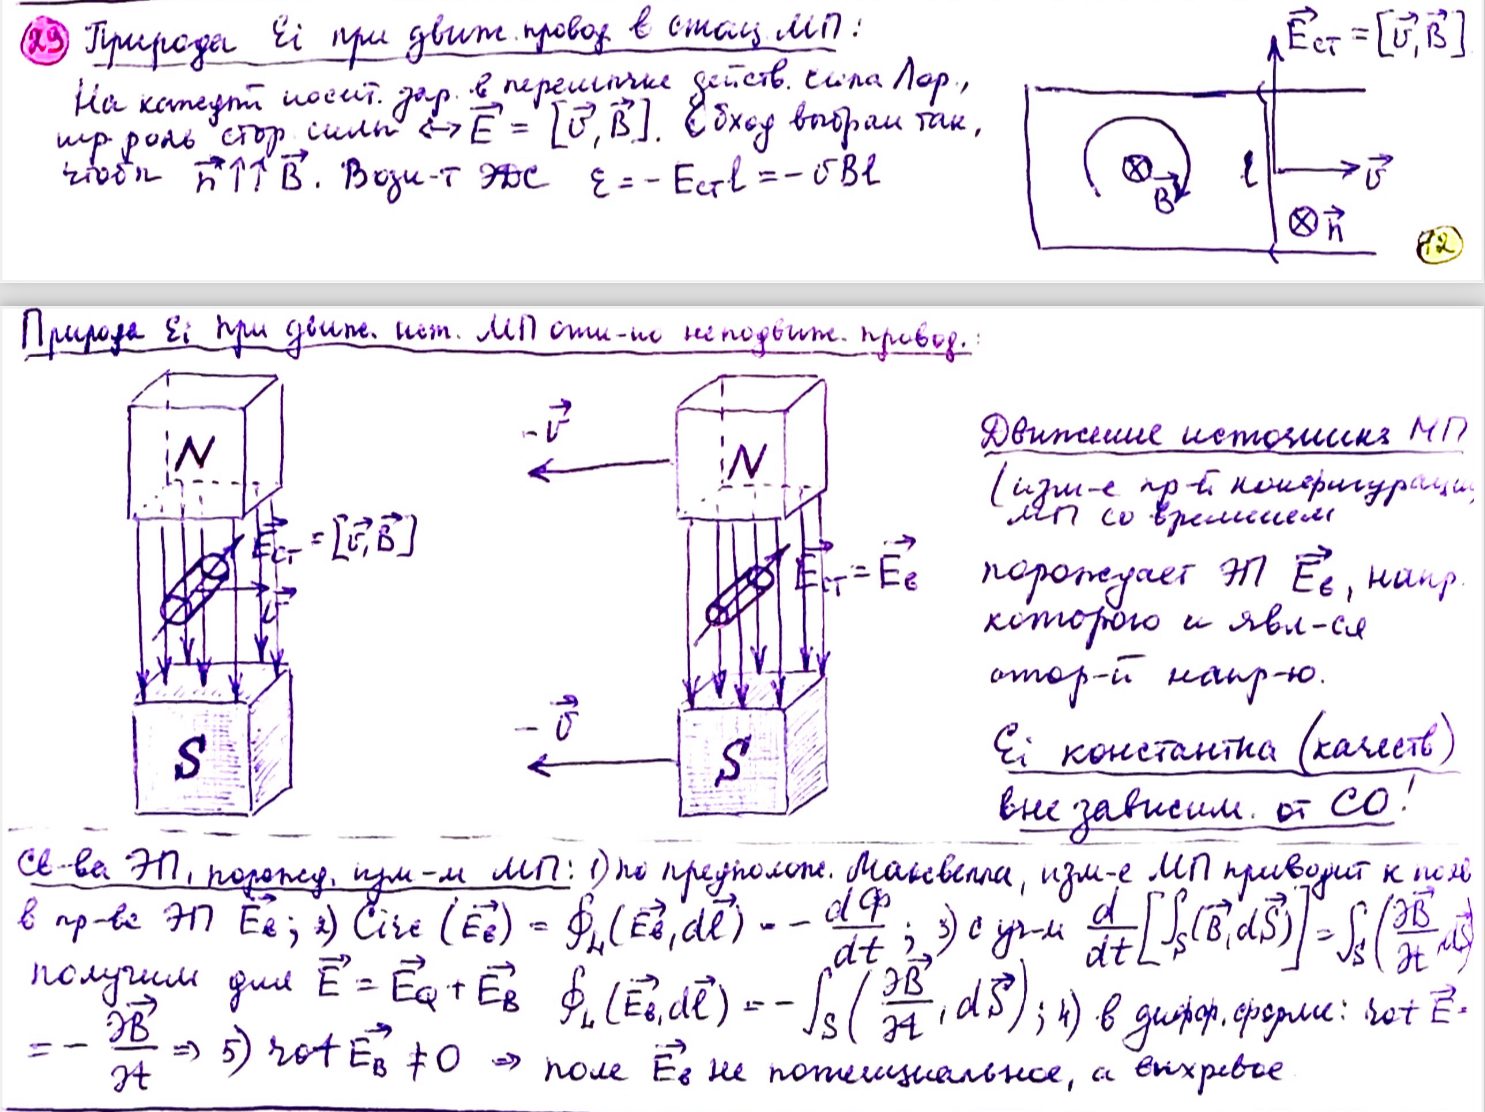 29 Природа Ei при движ. провод. в стац. МП:
На каждый носит. зар. в перемычке действ. сила Лор.,
игр роль стор силы <-> E⃗ = [v⃗, B⃗]. Обход выбран так,
чтобы n⃗ ↑↑ B⃗. Возн-т ЭДС ε = - Eстl = - vBl
E⃗ст = [v⃗, B⃗]
B⃗
l
v⃗
⊗ n⃗
12
Природа Ei при движ. ист. МП отн-но неподвиж. провод.:
N
E⃗ст = [v⃗, B⃗]
v⃗
S
- v⃗
N
E⃗ст = E⃗в
- v⃗
S
Движение источника МП
(изм-е пр-й конфигурации
МП со временем
порождает ЭП E⃗в, напр.
которого и явл-ся
стор-й напр-ю.
Ei константна (качеств)
вне зависим. от СО!
Св-ва ЭП, порожд. изм-м МП: 1) по предполож. Максвелла, изм-е МП приводит к появ
в пр-ве ЭП E⃗в; 2) Circ (E⃗в) = ∮L(E⃗в, dl⃗) = - dФ/dt; 3) с уч-м d/dt[∫S(B⃗, dS⃗)] = ∫S(∂B⃗/∂t, dS⃗)
получим для E⃗ = E⃗Q + E⃗B ∮L(E⃗в, dl⃗) = - ∫S(∂B⃗/∂t, dS⃗); 4) в дифф. форме: rot E⃗ =
= - ∂B⃗/∂t => 5) rot E⃗B ≠ 0 => поле E⃗в не потенциальное, а вихревое